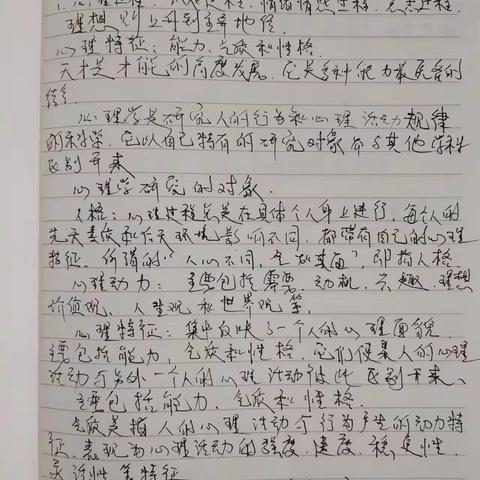 心理过程：认识过程、情绪情感过程、意志过程.
理想 则上升到主导地位
心理特征：能力、气质和性格.
天才是才能的高度发展，它是多种能力最完备的
结合.
心理学是研究人的行为和心理活动规律
的科学，它以自己特有的研究对象而与其他学科
区别开来
心理学研究的对象.
人格：心理过程总是在具体个人身上进行，每个人的
先天素质和后天环境影响不同，都带有自己的心理
特征，所谓的“人心不同，各如其面”，即指人格.
心理动力：主要包括需要、动机、兴趣、理想
价值观、人生观和世界观等.
心理特征：集中反映了一个人的心理面貌
主要包括能力、气质和性格. 它们使某人的心理
活动与另外一个人的心理活动彼此区别开来、
主要包括能力、气质和性格.
气质是指人的心理活动与行为产生的动力特
征，表现为心理活动的强度、速度、稳定性
灵活性等特征